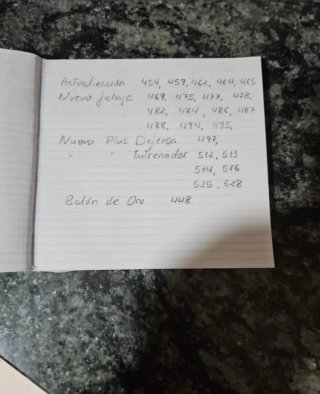 Actualización 454, 459, 462, 464, 465
Nuevo fichaje 469, 475, 477, 478,
482, 484, 486, 487
488, 494, 495,
Nuevo Plus Defensa 497,
" " Entrenador 512, 513
514, 516
525, 528
Balón de Oro 448